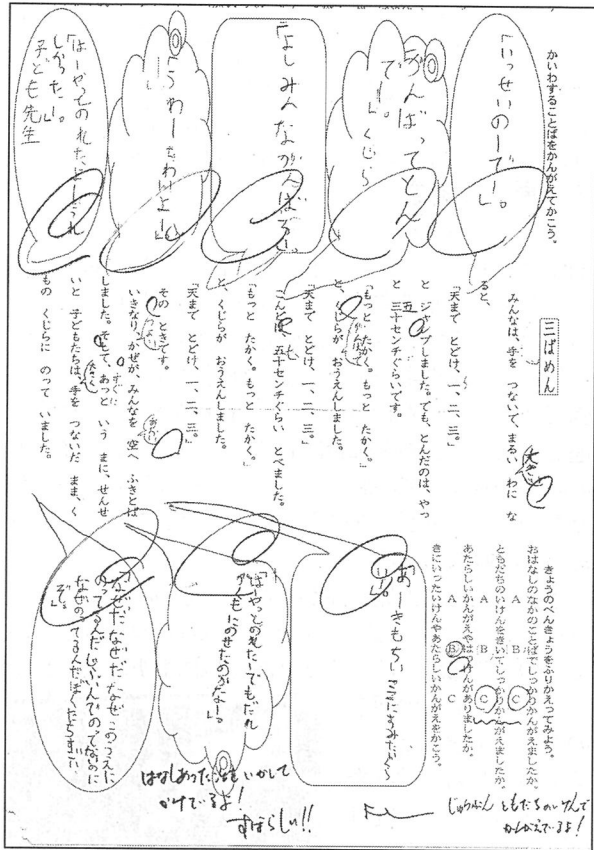 かいわすることばをかんがえてかこう。
「いっせいのーでー。」
がんばってとん
でー。」くじら
「よしみんながんばろー。」
「うわーちわいよー」
「はーやっとのれた、とし
しかったー。
子ども先生
三ばめん
みんなは、手を つないで、まるい わに な
ると、
大きく
「天まで とどけ、一、二、三。」
と ジャンプしました。でも、とんだのは、やっ
と 三十センチぐらいです。
五
「もっと たかく。もっと たかく。」
と、くじらが おうえんしました。
がんばって
「天まで とどけ、一、二、三。」
こんどは、五十センチぐらい とべました。
も
「もっと たかく。もっと たかく。」
と、くじらが おうえんしました。
「天まで とどけ、一、二、三。」
その ときです。
いきなり、かぜが、みんなを 空へ ふきとば
つよい
しました。そして、あっと いう まに、せんせ
すぐに
いと 子どもたちは、手を つないだ まま、く
大きく
もの くじらに のって いました。
きょうのべんきょうをふりかえってみよう。
おはなしのなかのことばでしっかりかんがえましたか。
A B C
ともだちのいけんをきいてしっかりかんがえましたか。
A B C
あたらしいかんがえやはっけんがありましたか。
A B C
きにいったいけんやあたらしいかんがえをかこう。
「あーきもちいい
ー。
「はーやっとのれたーでもだれ
がくもにのせたのかなー。」
「なぜだなぜだなぜこのうえに
のってるんだじぶんでのってないのに
なぜのってるんだぼくたちすごい
ぞ。」
はなしあったことをいかして
かけているよ!
すばらしい!!
じゅうぶん ともだちのいけんで
かんがえているよ!